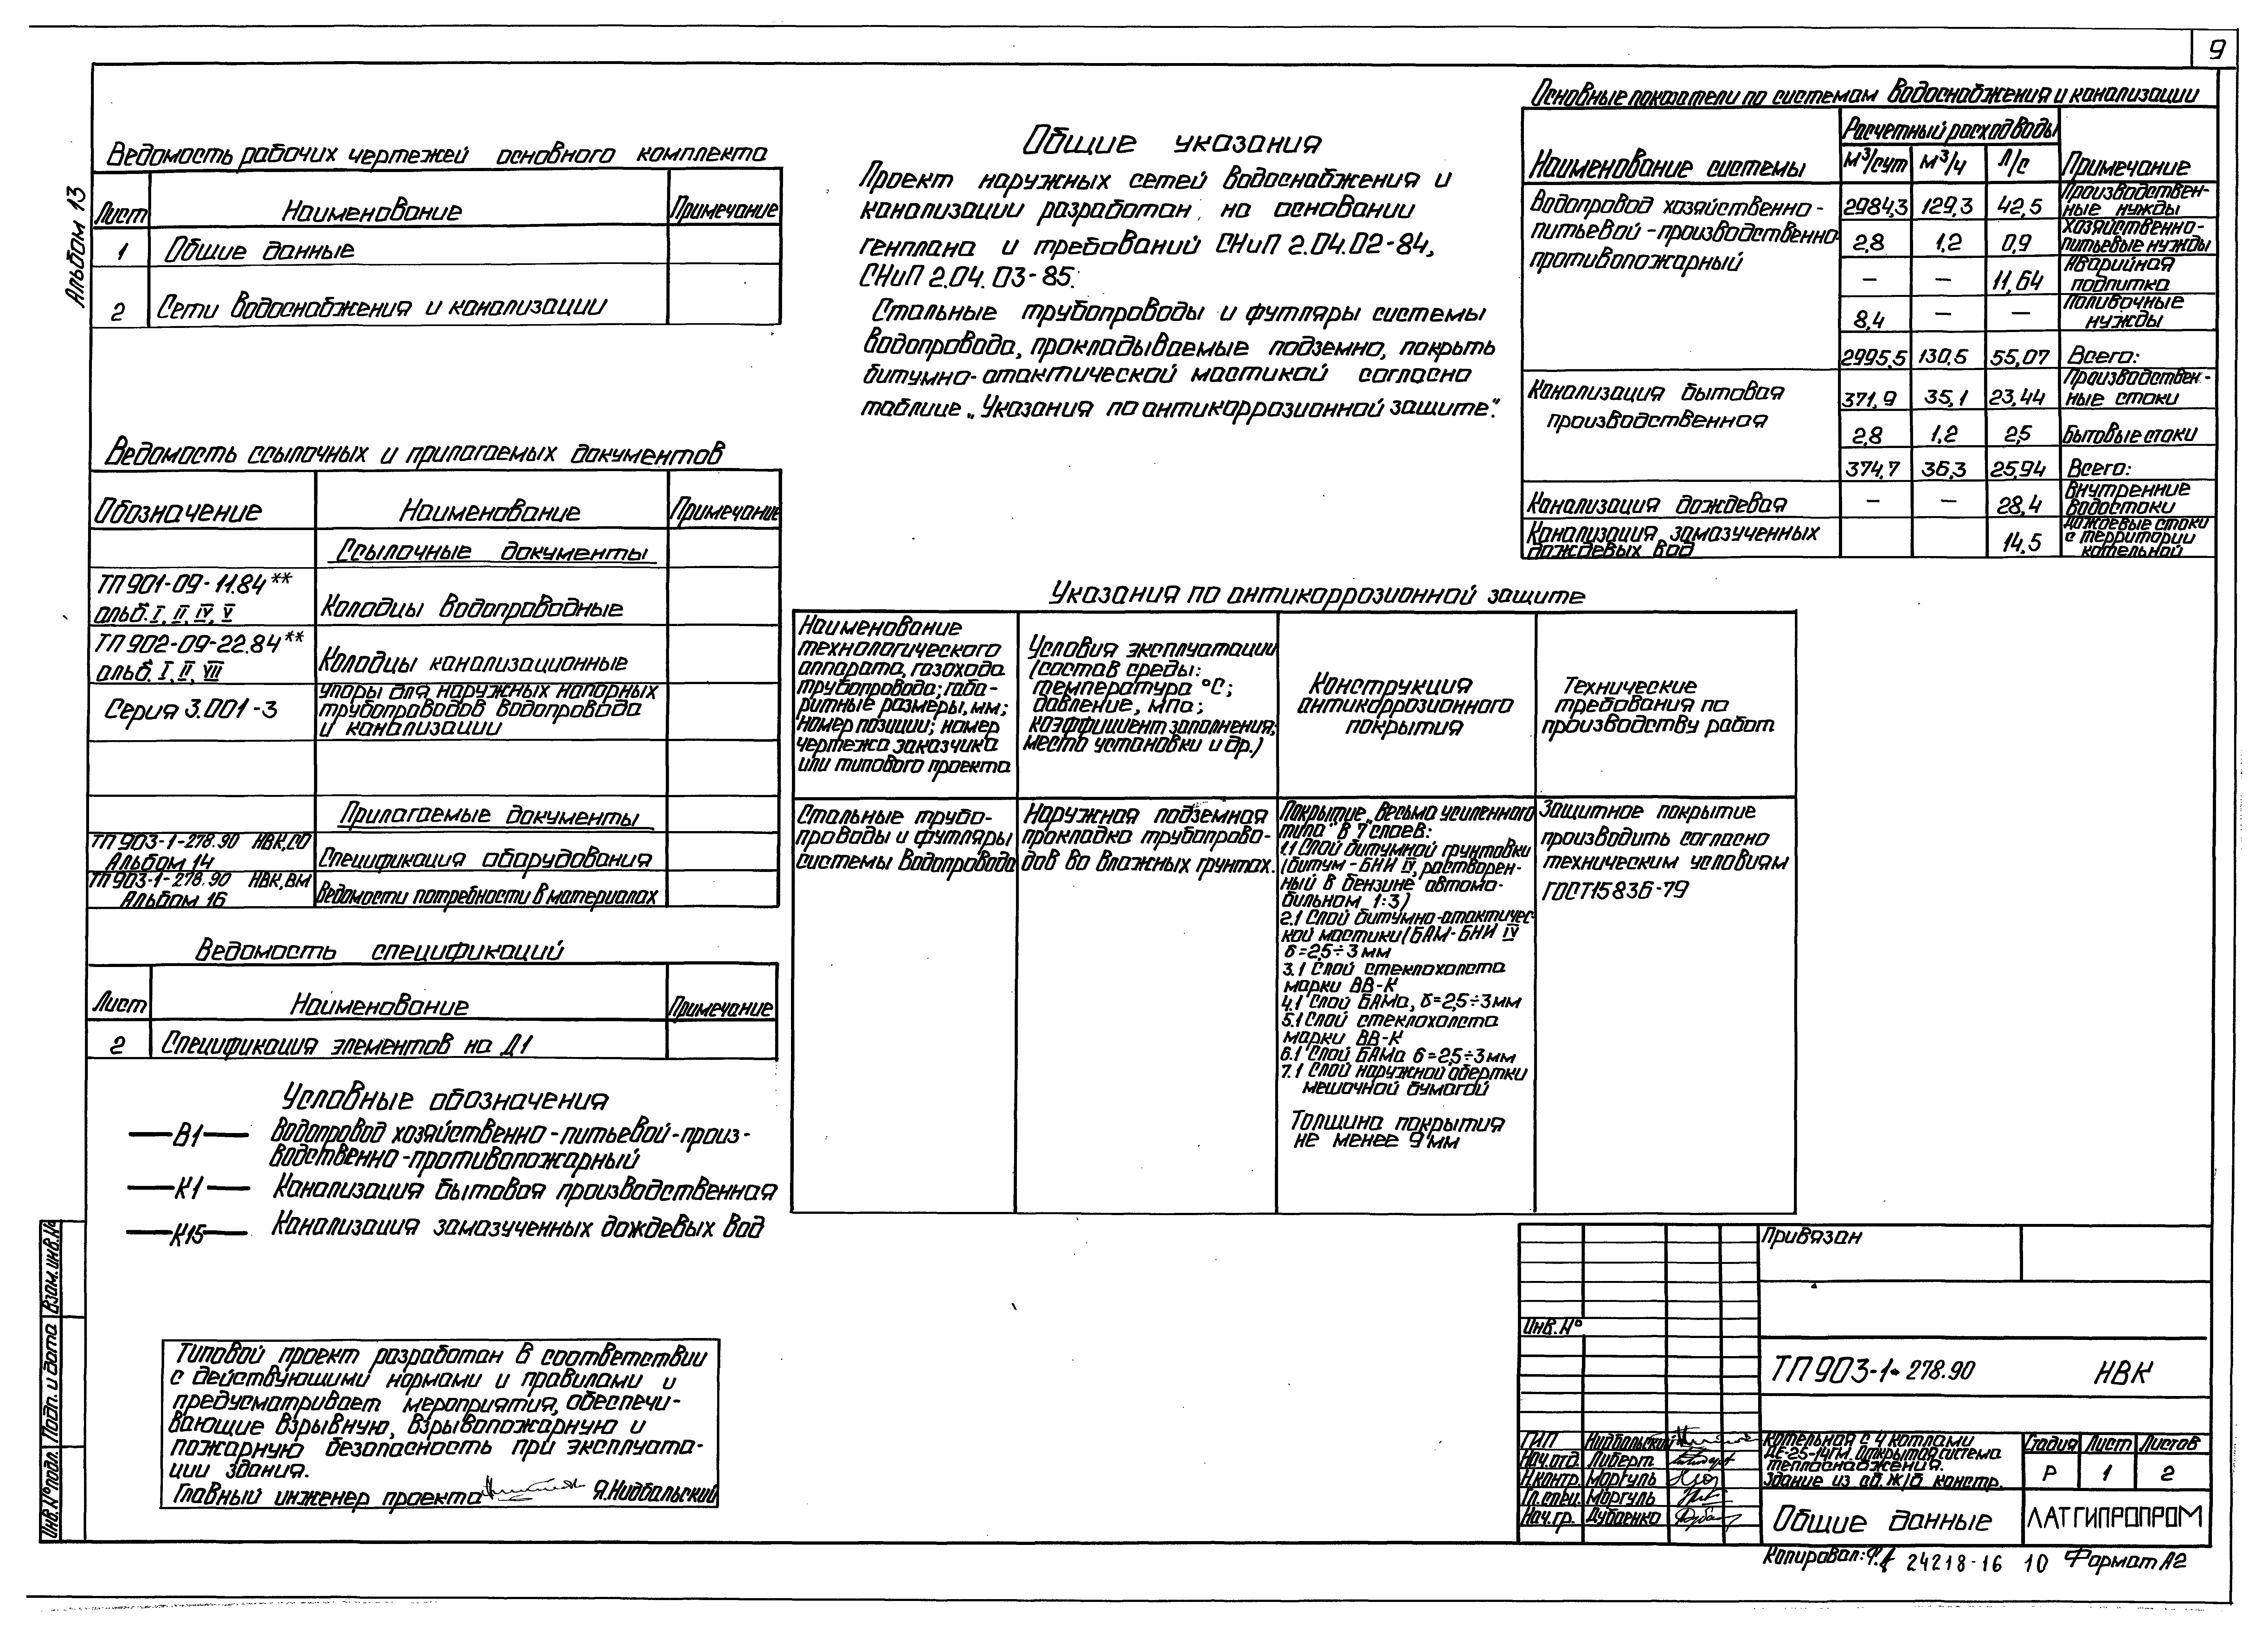 9
Альбом 13
Ведомость рабочих чертежей основного комплекта
Лист Наименование Примечание
1 Общие данные
2 Сети водоснабжения и канализации
Ведомость ссылочных и прилагаемых документов
Обозначение Наименование Примечание
Ссылочные документы
ТП 901-09-11.84**
альб. I, II, IV, V
Колодцы водопроводные
ТП 902-09-22.84**
альб. I, II, VII
Колодцы канализационные
Серия 3.001-3
Упоры для наружных напорных
трубопроводов водопровода
и канализации
Прилагаемые документы
ТП 903-1-278.90 НВК,СО
Альбом 14
Спецификация оборудования
ТП 903-1-278.90 НВК,ВМ
Альбом 16
Ведомости потребности в материалах
Ведомость спецификаций
Лист Наименование Примечание
2 Спецификация элементов на Д1
Условные обозначения
В1 Водопровод хозяйственно-питьевой-произ-
водственно-противопожарный
К1 Канализация бытовая производственная
К15 Канализация замазученных дождевых вод
Типовой проект разработан в соответствии
с действующими нормами и правилами и
предусматривает мероприятия, обеспечи-
вающие взрывную, взрывопожарную и
пожарную безопасность при эксплуата-
ции здания.
Главный инженер проекта Я.Нидбальский
Общие указания
Проект наружных сетей водоснабжения и
канализации разработан на основании
генплана и требований СНиП 2.04.02-84,
СНиП 2.04.03-85.
Стальные трубопроводы и футляры системы
водопровода, прокладываемые подземно, покрыть
битумно-атактической мастикой согласно
таблице „Указания по антикоррозионной защите".
Основные показатели по системам водоснабжения и канализации
Наименование системы
Расчетный расход воды
м³/сут м³/ч л/с
Примечание
Водопровод хозяйственно-
питьевой-производственно-
противопожарный
2984,3 129,3 42,5 Производствен-
ные нужды
2,8 1,2 0,9 Хозяйственно-
питьевые нужды
— — 11,64 Аварийная
подпитка
8,4 — — Поливочные
нужды
2995,5 130,5 55,07 Всего:
Канализация бытовая
производственная
371,9 35,1 23,44 Производствен-
ные стоки
2,8 1,2 2,5 Бытовые стоки
374,7 36,3 25,94 Всего:
Канализация дождевая — — 28,4 Внутренние
водостоки
Канализация замазученных
дождевых вод
14,5 Дождевые стоки
с территории
котельной
Указания по антикоррозионной защите
Наименование
технологического
аппарата, газохода
трубопровода; габа-
ритные размеры, мм;
номер позиции; номер
чертежа заказчика
или типового проекта
Условия эксплуатации
(состав среды:
температура °С;
давление, мпа;
коэффициент заполнения;
место установки и др.)
Конструкция
антикоррозионного
покрытия
Технические
требования по
производству работ
Стальные трубо-
проводы и футляры
системы водопровода
Наружная подземная
прокладка трубопрово-
дов во влажных грунтах.
Покрытие „Весьма усиленного
типа" в 7 слоев:
1.1 Слой битумной грунтовки
(битум-БНИ IV, растворен-
ный в бензине автомо-
бильном 1:3)
2.1 Слой битумно-атактичес-
кой мастики (БАМ-БНИ IV
б=2,5÷3 мм
3.1 Слой стеклохолста
марки ВВ-К
4.1 Слой БАМа, б=2,5÷3 мм
5.1 Слой стеклохолста
марки ВВ-К
6.1 Слой БАМа б=2,5÷3 мм
7.1 Слой наружной обертки
мешочной бумагой
Толщина покрытия
не менее 9 мм
Защитное покрытие
производить согласно
техническим условиям
ГОСТ 15836-79
Взам.инв.№
Подп. и дата
Инв.№ подл.
Привязан
Инв.№
ТП 903-1-278.90 НВК
ГИП Нидбальский
Нач.отд. Либерт
Н.контр. Моргуль
Гл.спец. Моргуль
Нач.гр. Дубаенко
Котельная с 4 котлами
ДЕ-25-14ГМ. Открытая система
теплоснабжения.
Здание из сб. ж/б констр.
Стадия Лист Листов
Р 1 2
Общие данные
ЛАТГИПРОПРОМ
Копировал: 24218-16 10 Формат А2